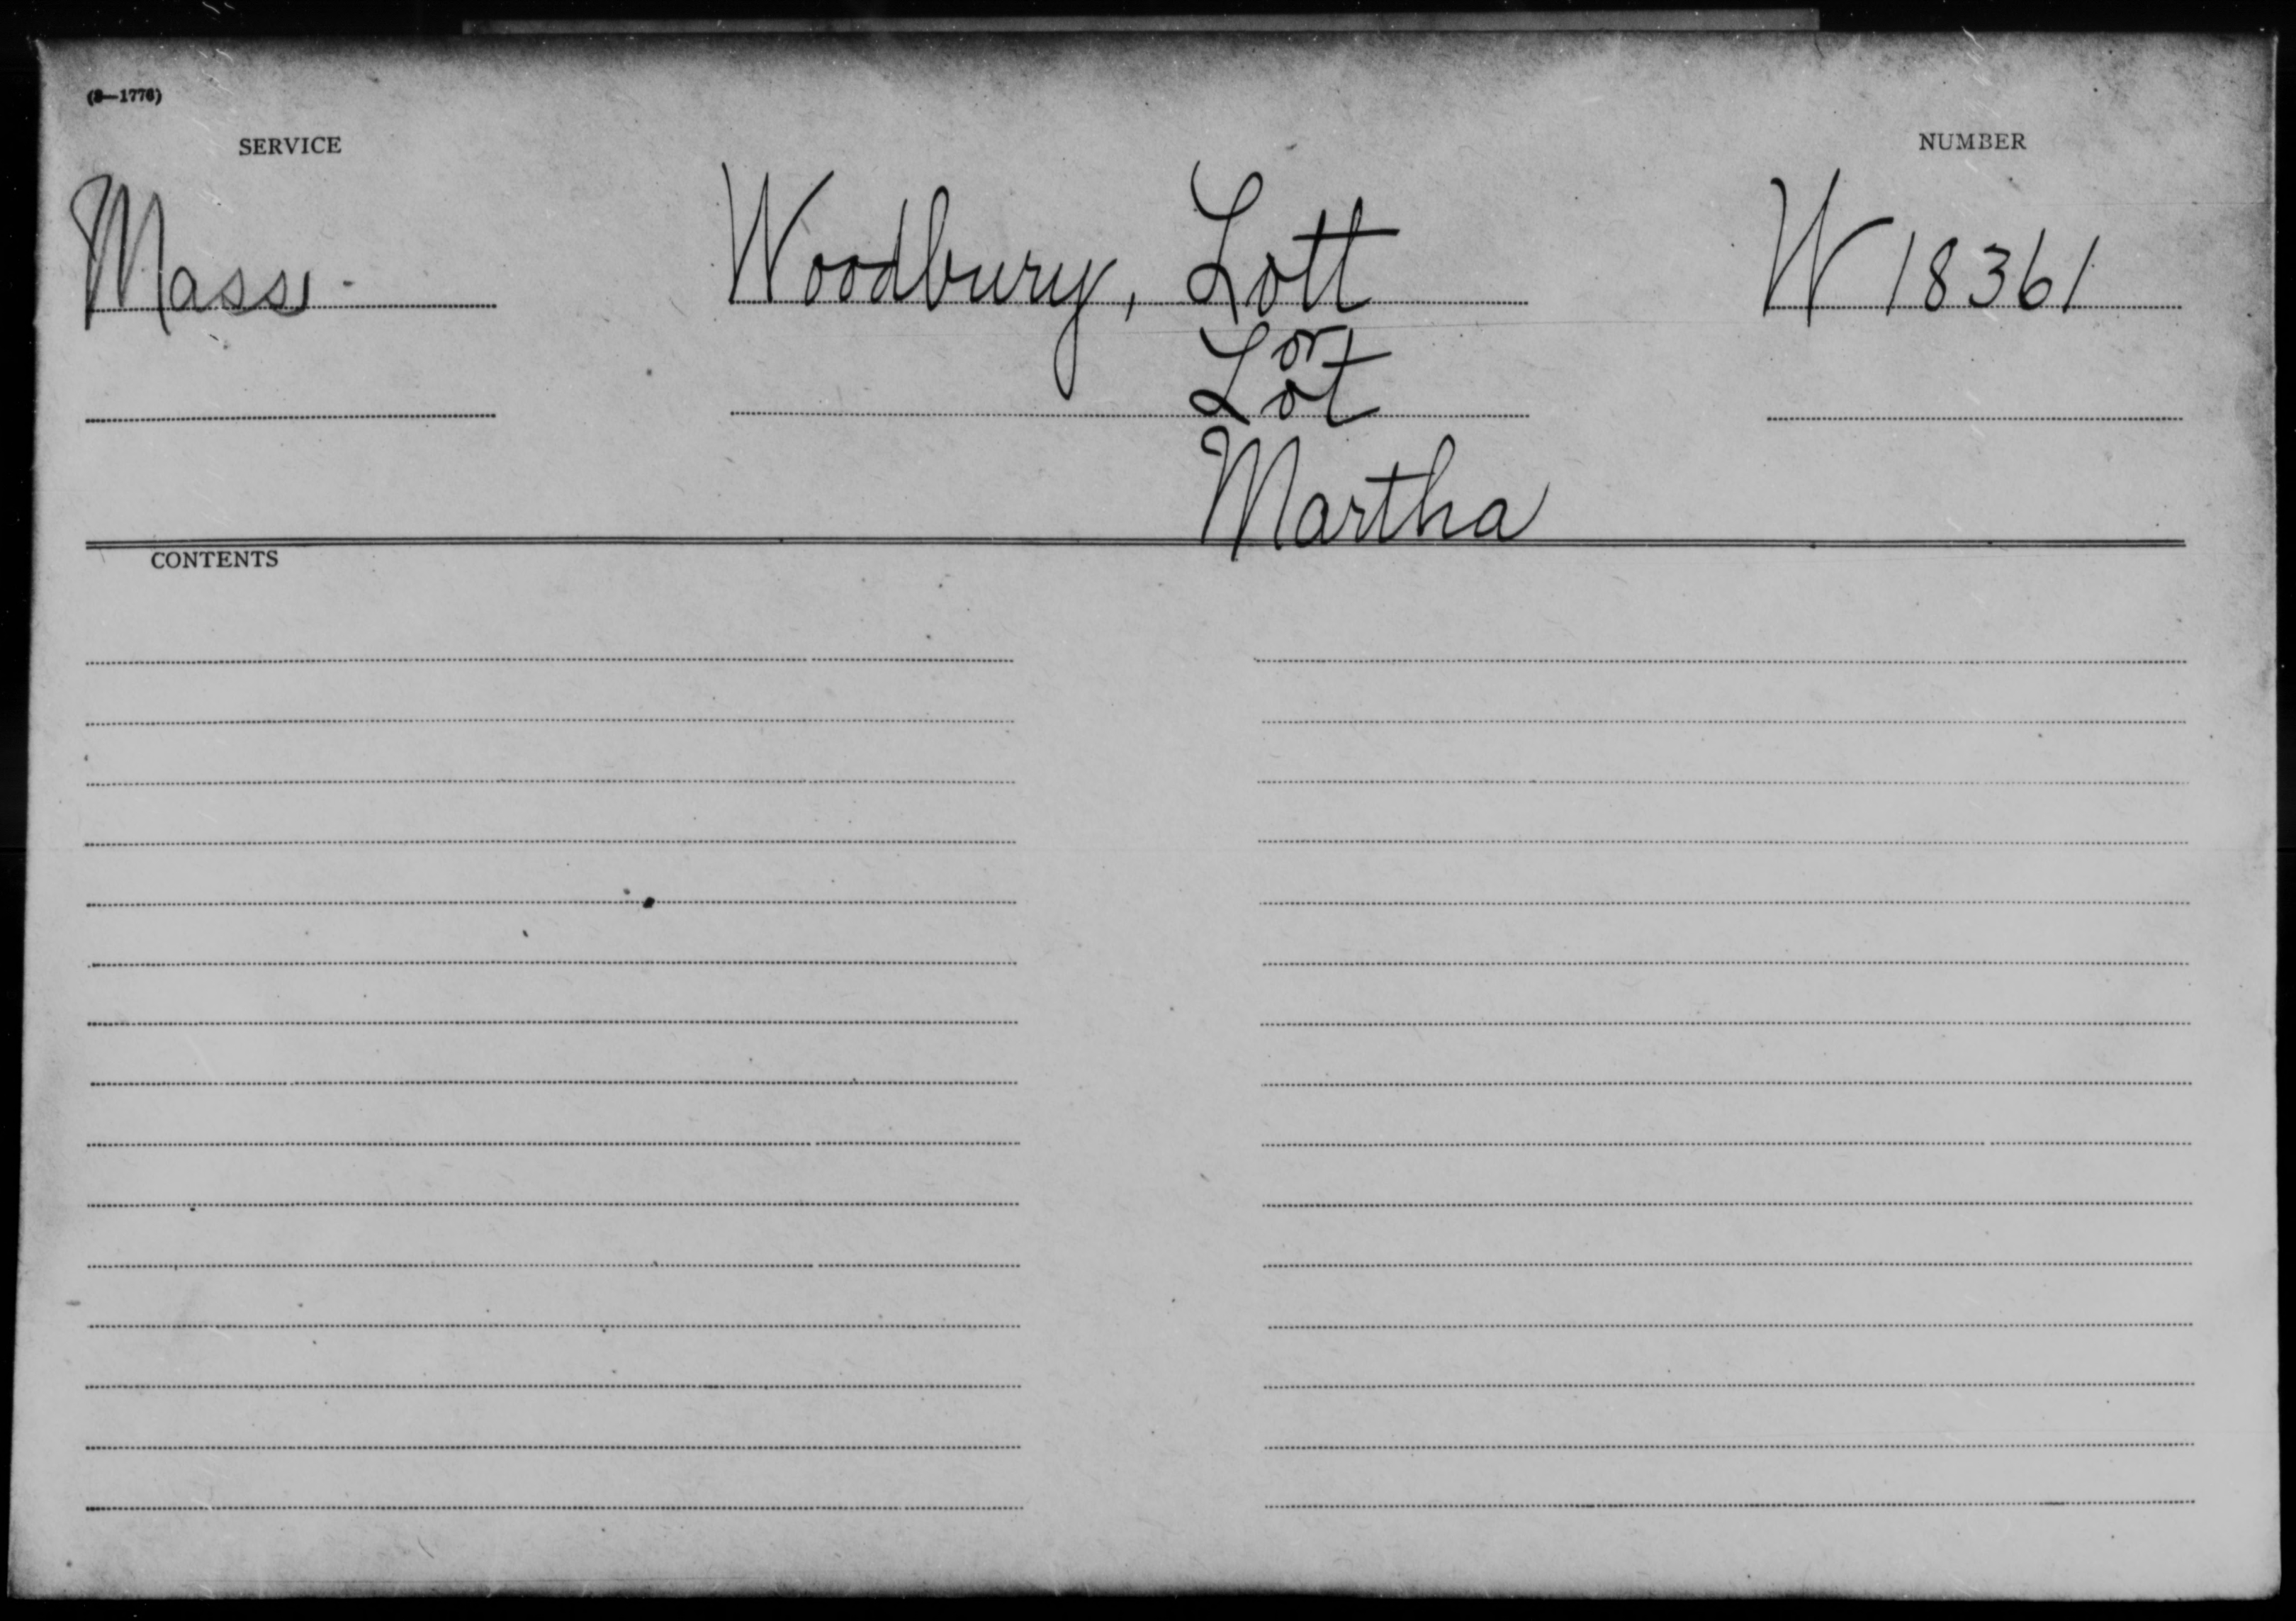 (3—1776)
SERVICE
NUMBER
Mass. Woodbury, Lott W 18361
or
Lot
Martha
CONTENTS